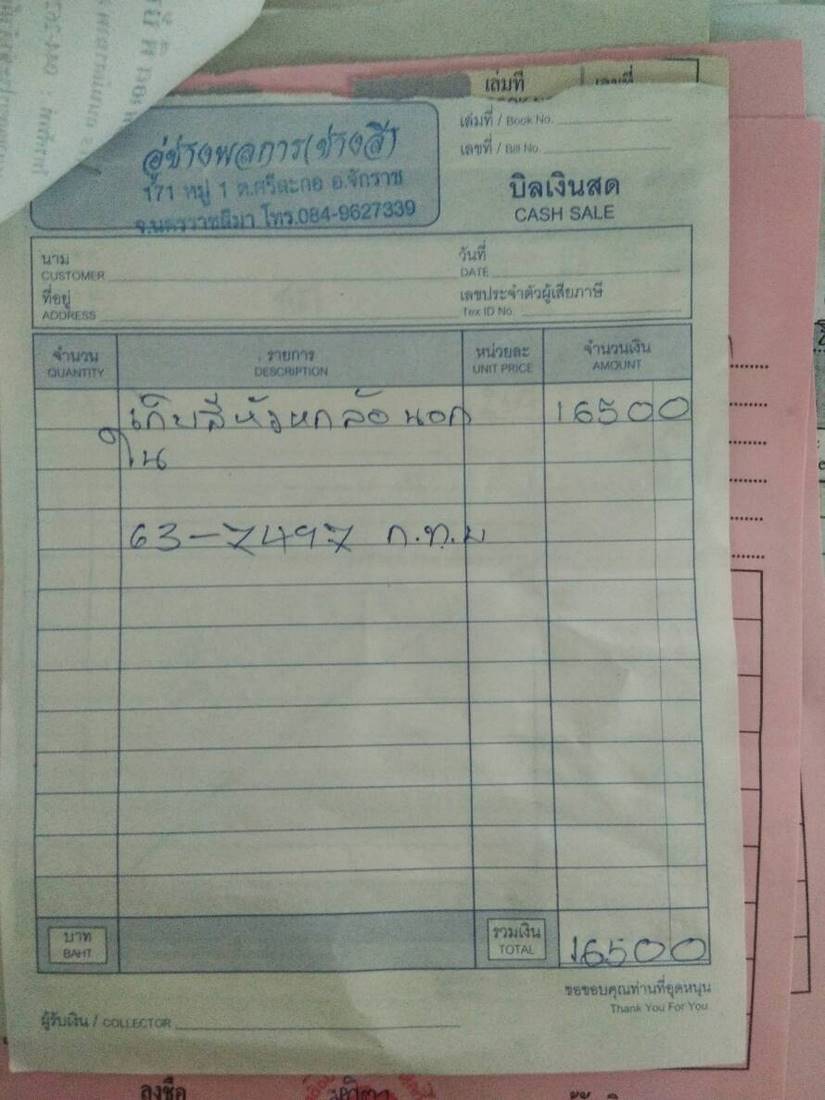 เล่มที่
เลขที่
อู่ช่างพลการ(ช่างสี)
171 หมู่ 1 ต.ศรีละกอ อ.จักราช
จ.นครราชสีมา โทร.084-9627339
เล่มที่ / Book No.
เลขที่ / Bill No.
บิลเงินสด
CASH SALE
นาม
CUSTOMER
วันที่
DATE
ที่อยู่
ADDRESS
เลขประจำตัวผู้เสียภาษี
Tex ID No.
จำนวน รายการ หน่วยละ จำนวนเงิน
QUANTITY DESCRIPTION UNIT PRICE AMOUNT
เก็บสีหัวหกล้อ นอก 16500
ใน
63-7497 ก.ท.ม
บาท
BAHT
รวมเงิน
TOTAL
16500
ขอขอบคุณท่านที่อุดหนุน
Thank You For You
ผู้รับเงิน / COLLECTOR
ลงชื่อ